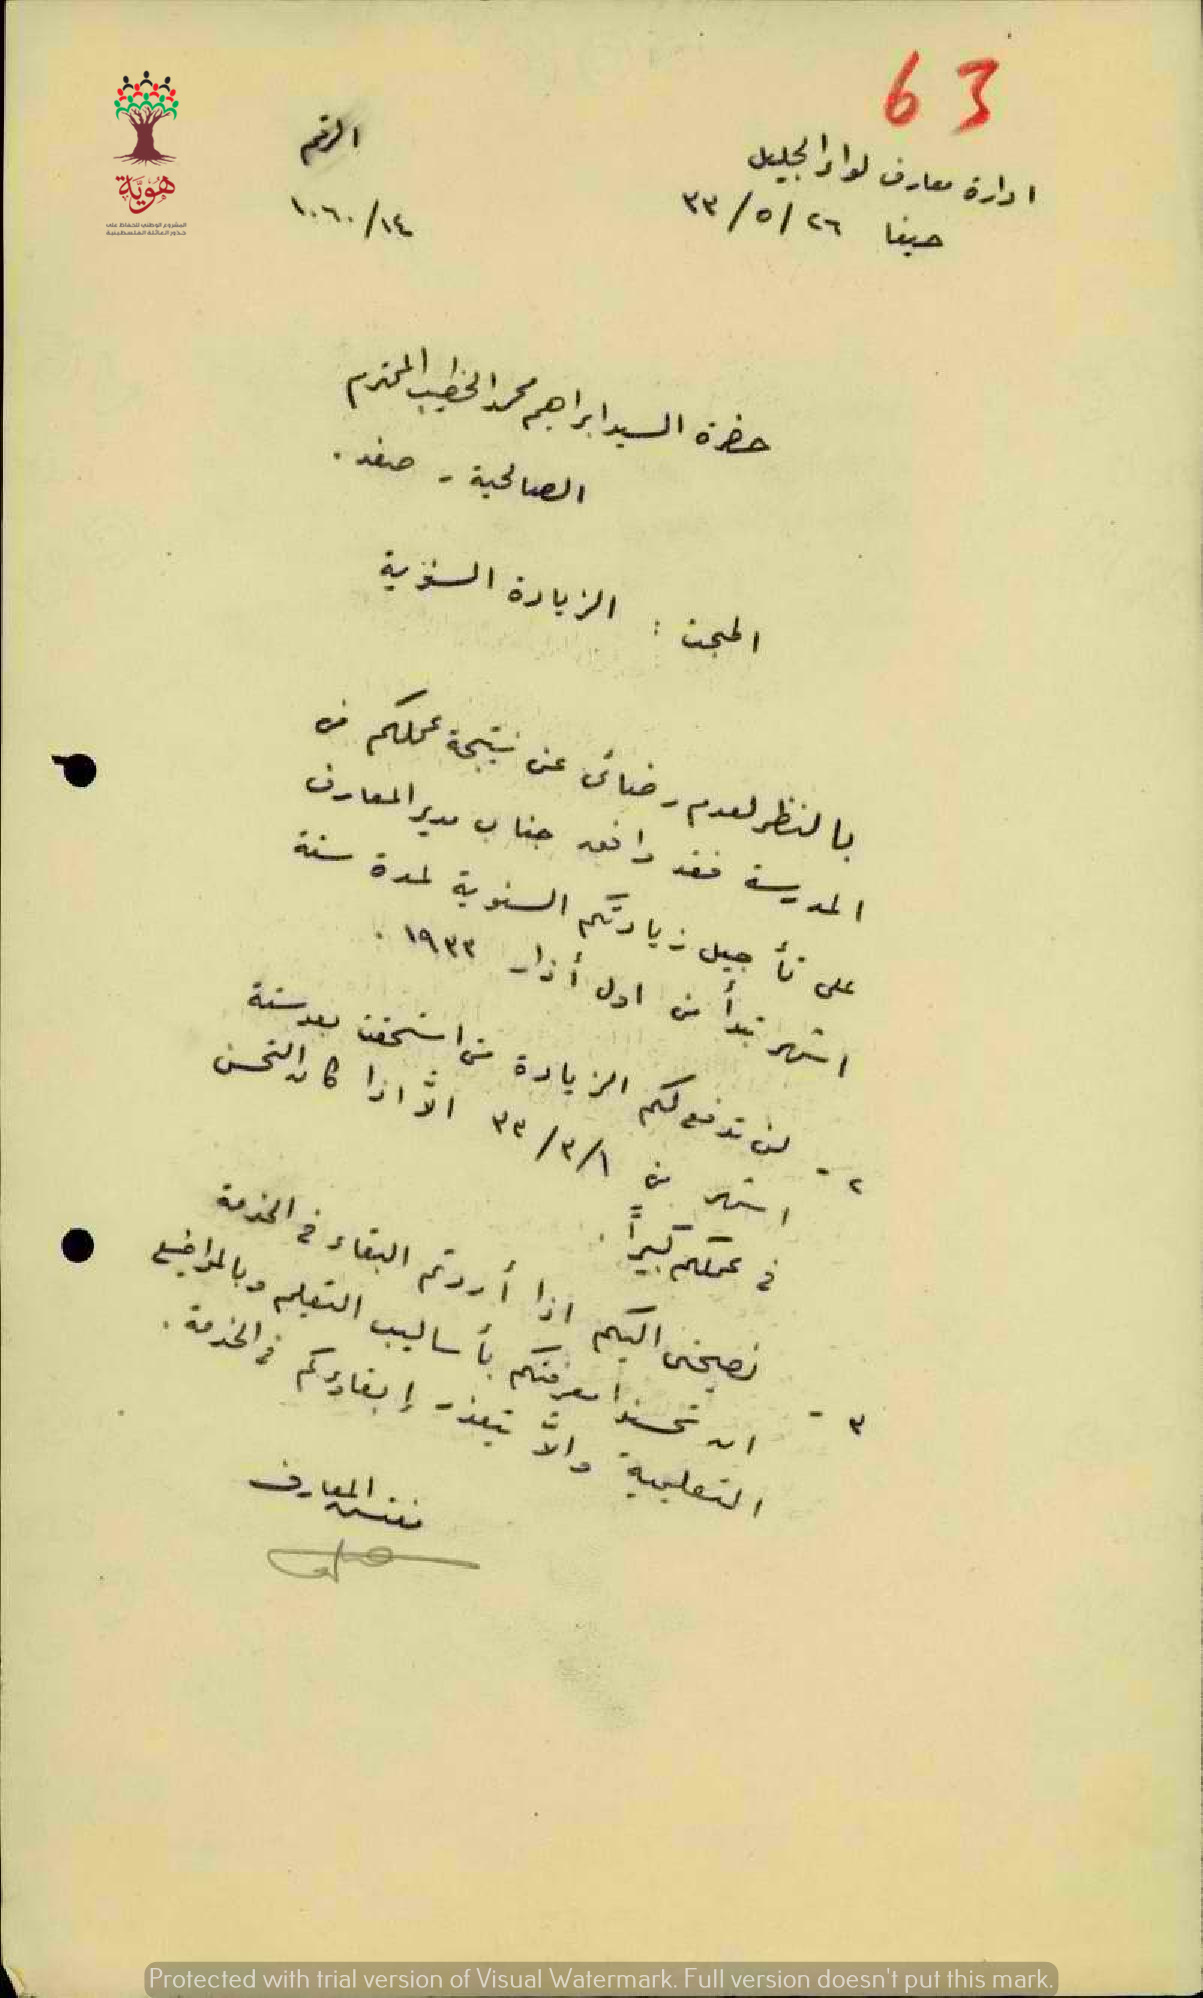 63
ادارة معارف لواء الجليل
الرقم
حيفا ٢٦/٥/٣٣
١٠٦٠/١٤
هُويَّة
المشروع الوطني للحفاظ على
جذور العائلة الفلسطينية
حضرة السيد ابراهيم محمد الخطيب المحترم
الصالحية - صفد .
المبحث : الزيادة السنوية
بالنظر لعدم رضائى عن نتيجة عملكم في
المدرسة فقد وافق جناب مدير المعارف
على تأجيل زيادتكم السنوية لمدة ستة
اشهر تبدأ من اول أذار ١٩٣٣ .
٢ - لن تدفع لكم الزيادة متى استحقت بعد ستة
اشهر من ٣٣/٣/١ الّا اذا كان التحسن
في عملكم كبيراً .
٣ - نصيحتى اليكم اذا أردتم البقاء في الخدمة
ان تحسنوا معرفتكم بأساليب التعليم وبالمواضيع
التعليمية والّا يتعذر إبقاؤكم في الخدمة .
مفتش المعارف
Protected with trial version of Visual Watermark. Full version doesn't put this mark.